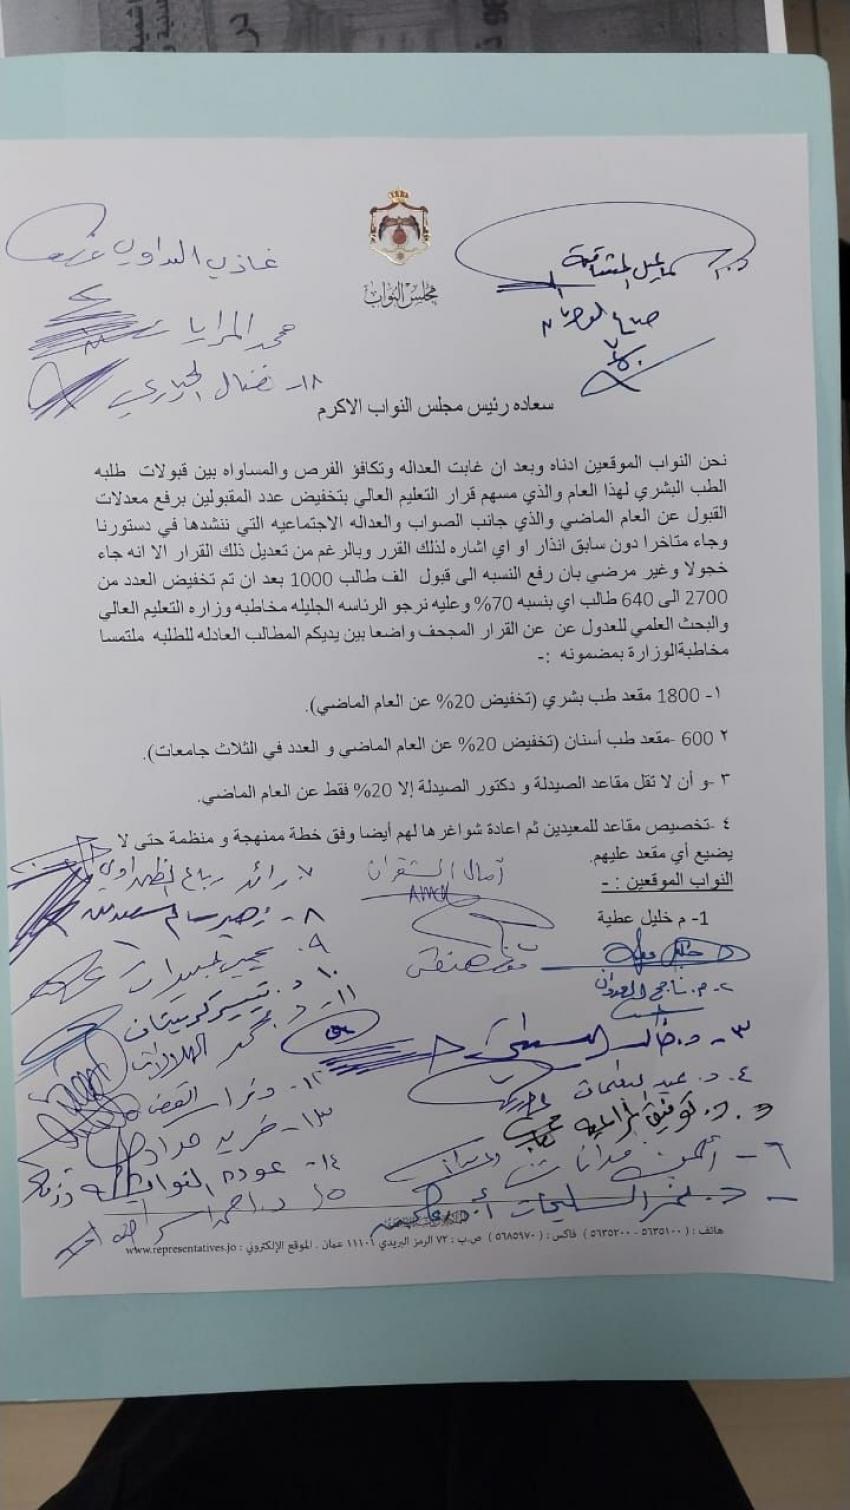 مجلس النواب
غازي البداوي
محمد المرايا
١٨- نضال الحياري
المشاقبة
سعاده رئيس مجلس النواب الاكرم
نحن النواب الموقعين ادناه وبعد ان غابت العداله وتكافؤ الفرص والمساواه بين قبولات طلبه
الطب البشري لهذا العام والذي مسهم قرار التعليم العالي بتخفيض عدد المقبولين برفع معدلات
القبول عن العام الماضي والذي جانب الصواب والعداله الاجتماعيه التي ننشدها في دستورنا
وجاء متاخرا دون سابق انذار او اي اشاره لذلك القرر وبالرغم من تعديل ذلك القرار الا انه جاء
خجولا وغير مرضي بان رفع النسبه الى قبول الف طالب 1000 بعد ان تم تخفيض العدد من
2700 الى 640 طالب اي بنسبه 70% وعليه نرجو الرئاسه الجليله مخاطبه وزاره التعليم العالي
والبحث العلمي للعدول عن عن القرار المجحف واضعا بين يديكم المطالب العادله للطلبه ملتمسا
مخاطبةالوزارة بمضمونه :-
١- 1800 مقعد طب بشري (تخفيض 20% عن العام الماضي).
٢ 600 -مقعد طب أسنان (تخفيض 20% عن العام الماضي و العدد في الثلاث جامعات).
٣ -و أن لا تقل مقاعد الصيدلة و دكتور الصيدلة إلا 20% فقط عن العام الماضي.
٤ -تخصيص مقاعد للمعيدين ثم اعادة شواغرها لهم أيضا وفق خطة ممنهجة و منظمة حتى لا
يضيع أي مقعد عليهم.
النواب الموقعين : -
1- م خليل عطية
٢- م. ناجح العدوان
٣-
٤- د. عيد النعيمات
د. توفيق المراعية
٦- أيمن مدانات
- د. نمر السليحات
آمال الشقران
٧- رائد رباع الظهراوي
٨- زهير سالم السعيديين
٩- يحيى عبيدات
١٠- د. تيسير كريشان
١١- د. محمد الهلالات
١٢-
١٣- فريد حداد
١٤- عودة النوايشة
١٥ د. احمد
هاتف : ( ٥٦٣٥١٠٠ - ٥٦٣٥٢٠٠ ) فاكس : ( ٥٦٨٥٩٧٠ ) ص.ب : ٧٢ الرمز البريدي ١١١٠١ عمان . الموقع الإلكتروني : www.representatives.jo